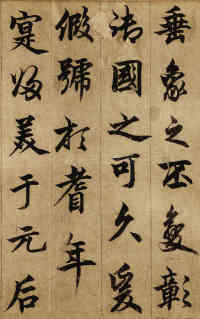 垂象之丕彰
國之可久爰
假號於耆年
寔歸美于元后